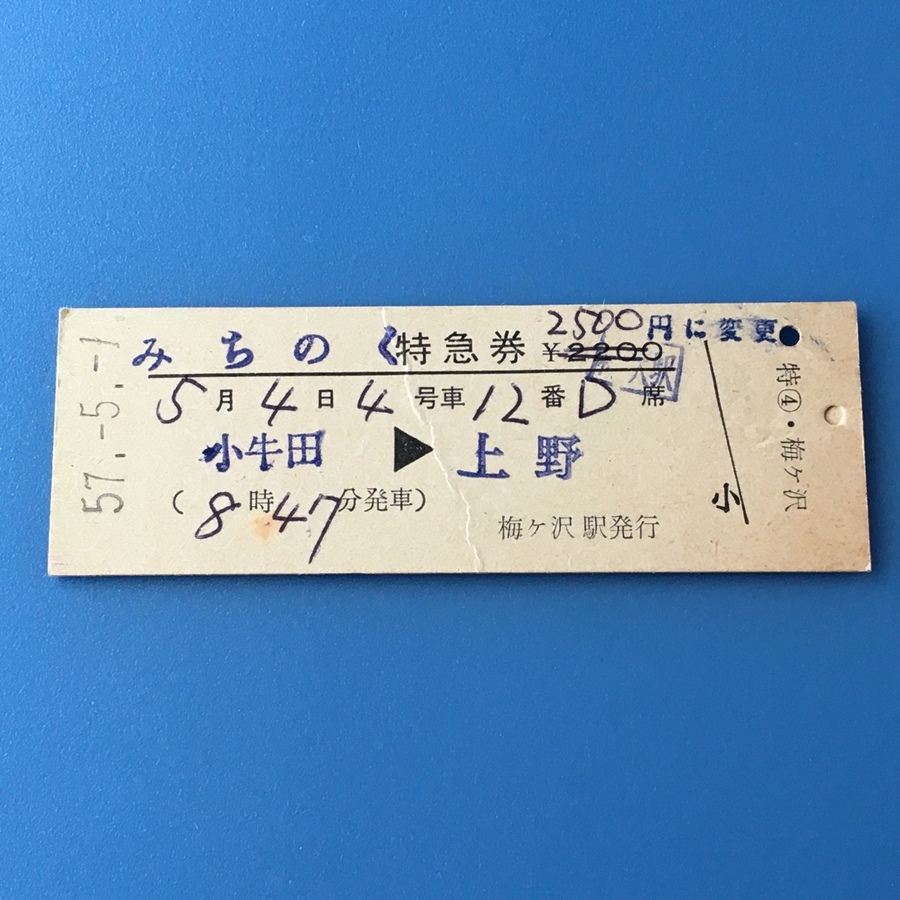 57.-5.-1
2500円に変更
みちのく特急券 ¥2200
5月4日4号車12番D席
小牛田▶上野
(8時47分発車)
梅ケ沢駅発行
小
特④・梅ケ沢